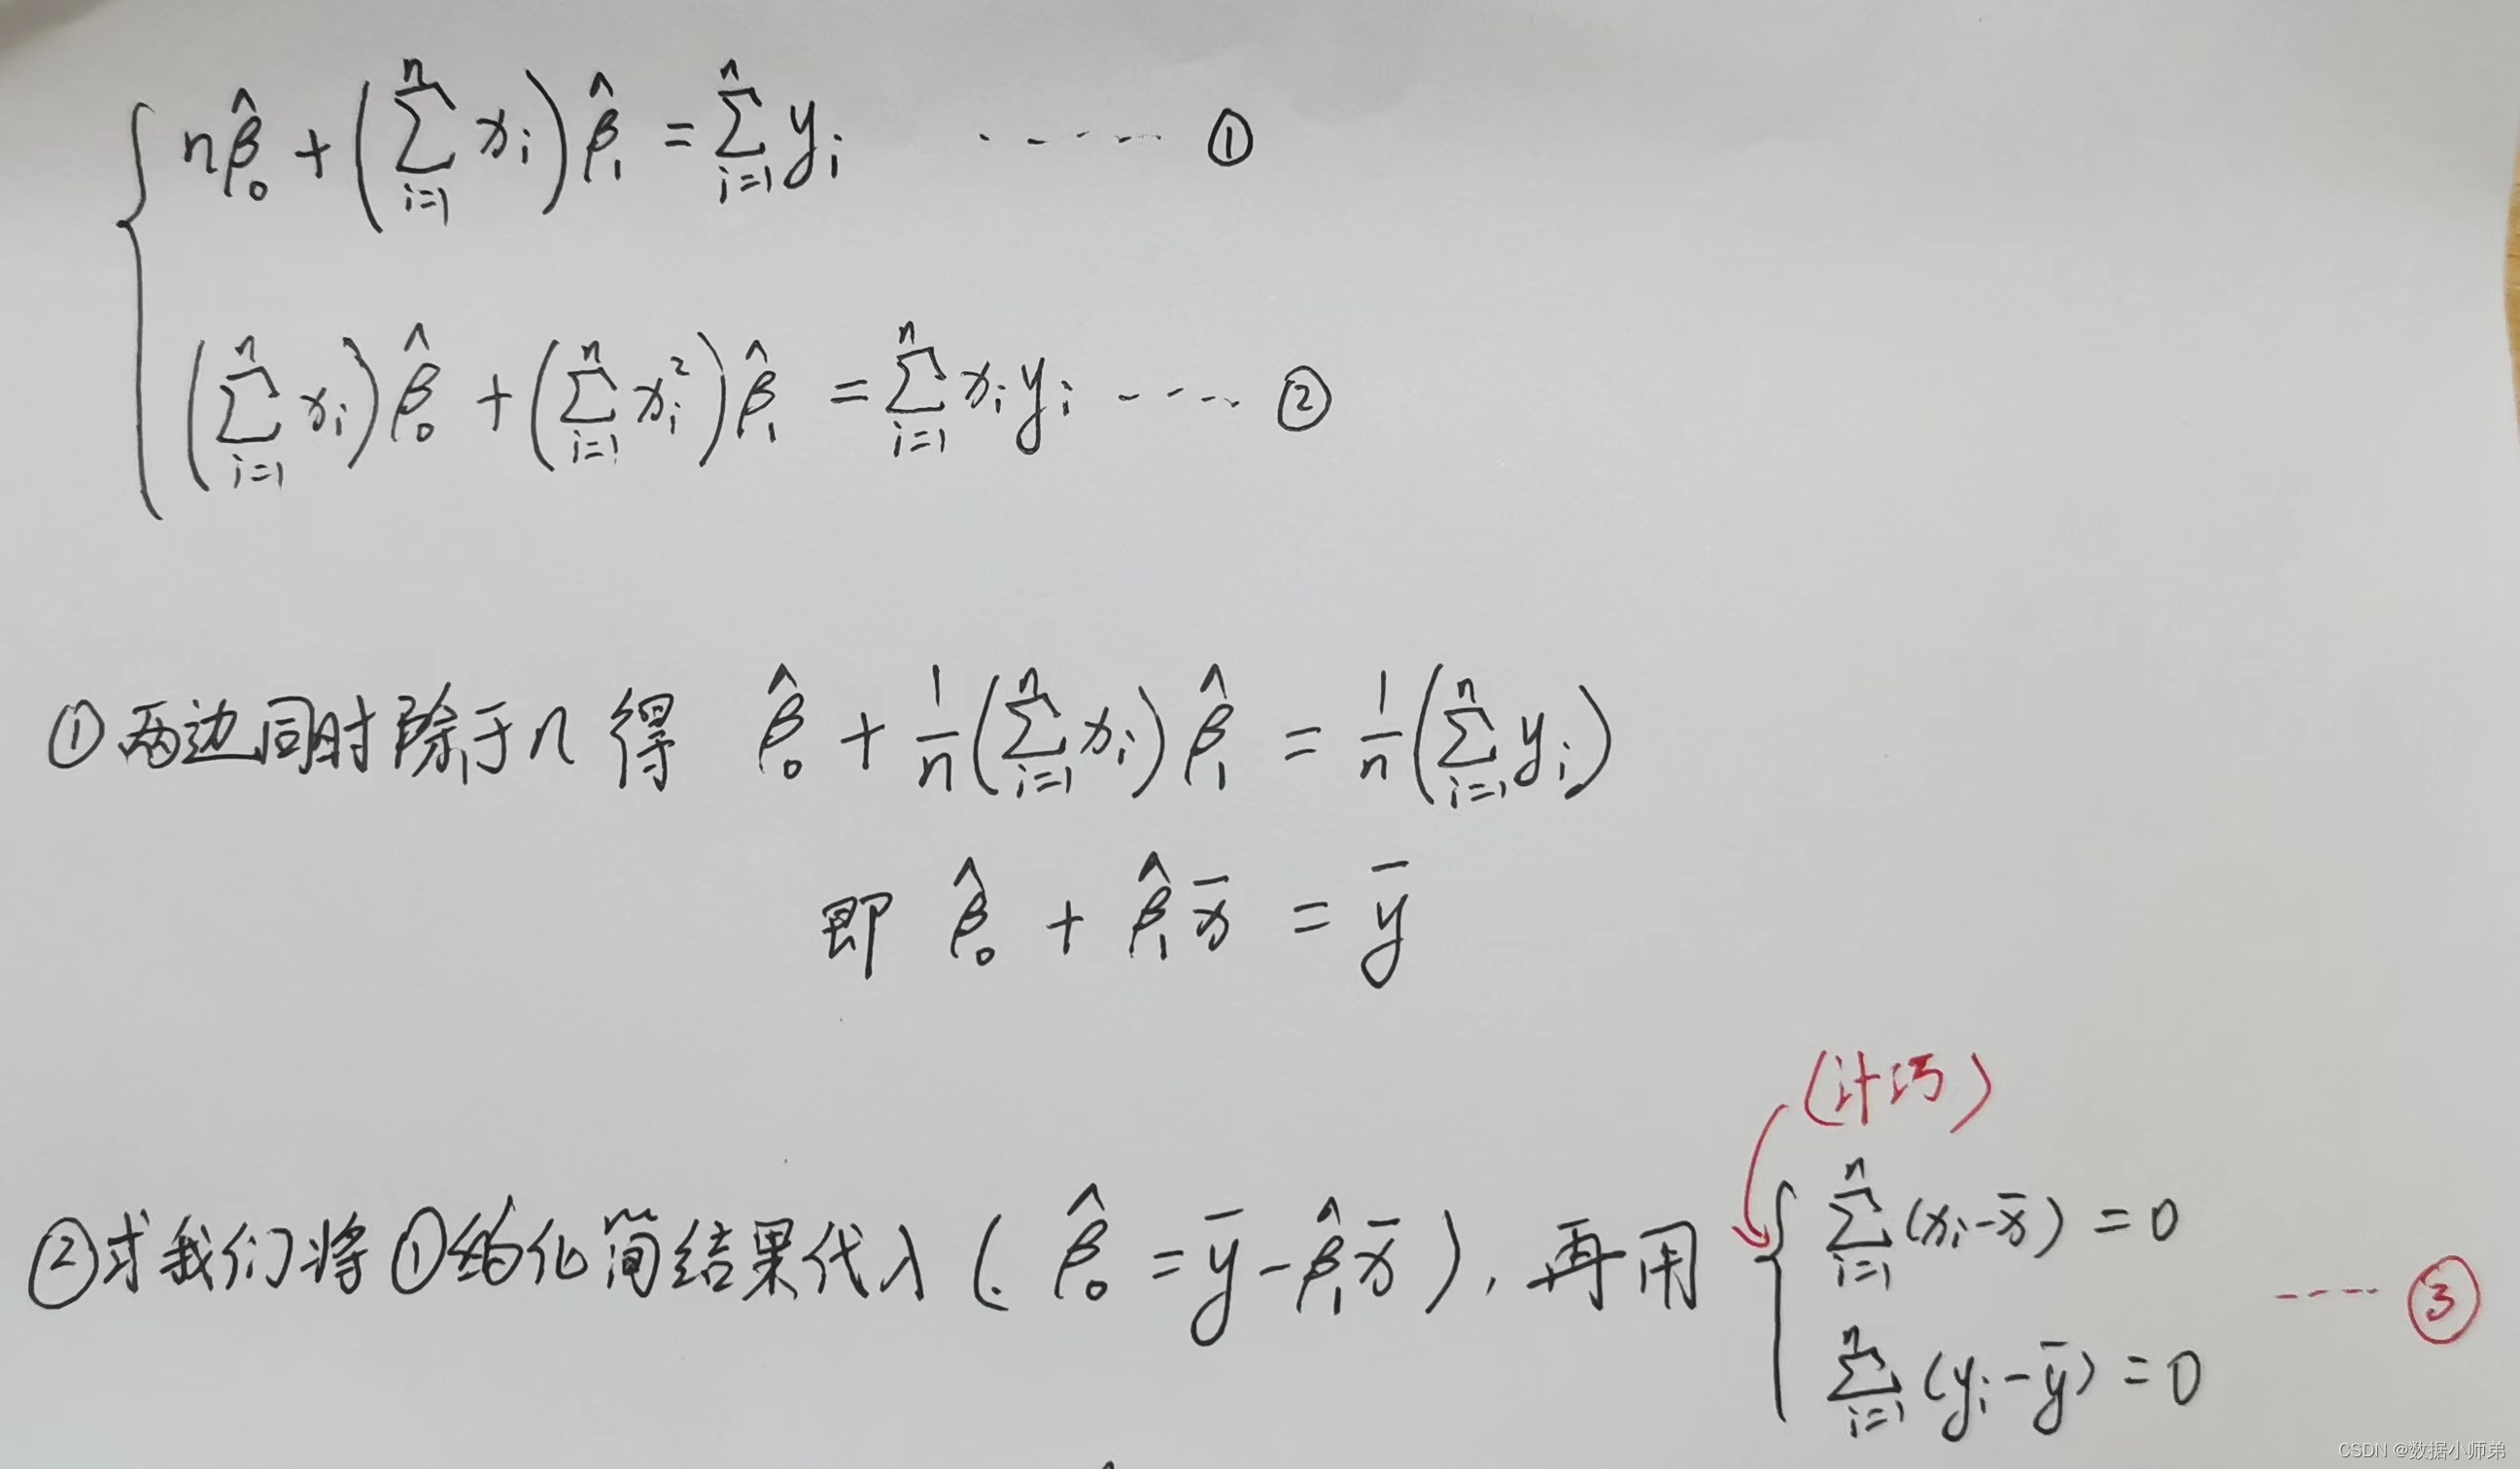 n\hat{β}_0 + (\sum_{i=1}^{n} x_i) \hat{β}_1 = \sum_{i=1}^{n} y_i ...... ①
(\sum_{i=1}^{n} x_i) \hat{β}_0 + (\sum_{i=1}^{n} x_i^2) \hat{β}_1 = \sum_{i=1}^{n} x_i y_i ..... ②
①两边同时除于n 得 \hat{β}_0 + \frac{1}{n} (\sum_{i=1}^{n} x_i) \hat{β}_1 = \frac{1}{n} (\sum_{i=1}^{n} y_i)
即 \hat{β}_0 + \hat{β}_1 \bar{x} = \bar{y}
(计巧)
②求我们将①的化简结果代入(. \hat{β}_0 = \bar{y} - \hat{β}_1 \bar{x}), 再用 { \sum_{i=1}^{n} (x_i - \bar{x}) = 0
\sum_{i=1}^{n} (y_i - \bar{y}) = 0 .... ③
CSDN @数据小师弟